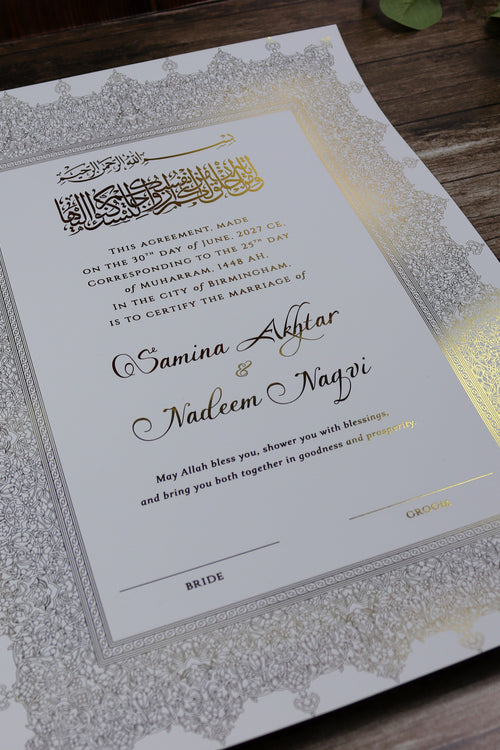 بسم الله الرحمن الرحيم
ومن آياته أن خلق لكم من أنفسكم أزواجا لتسكنوا إليها
THIS AGREEMENT, MADE
ON THE 30TH DAY OF JUNE, 2027 CE,
CORRESPONDING TO THE 25TH DAY
OF MUHARRAM, 1448 AH,
IN THE CITY OF BIRMINGHAM,
IS TO CERTIFY THE MARRIAGE OF
Samina Akhtar
&
Nadeem Naqvi
May Allah bless you, shower you with blessings,
and bring you both together in goodness and prosperity.
BRIDE
GROOM